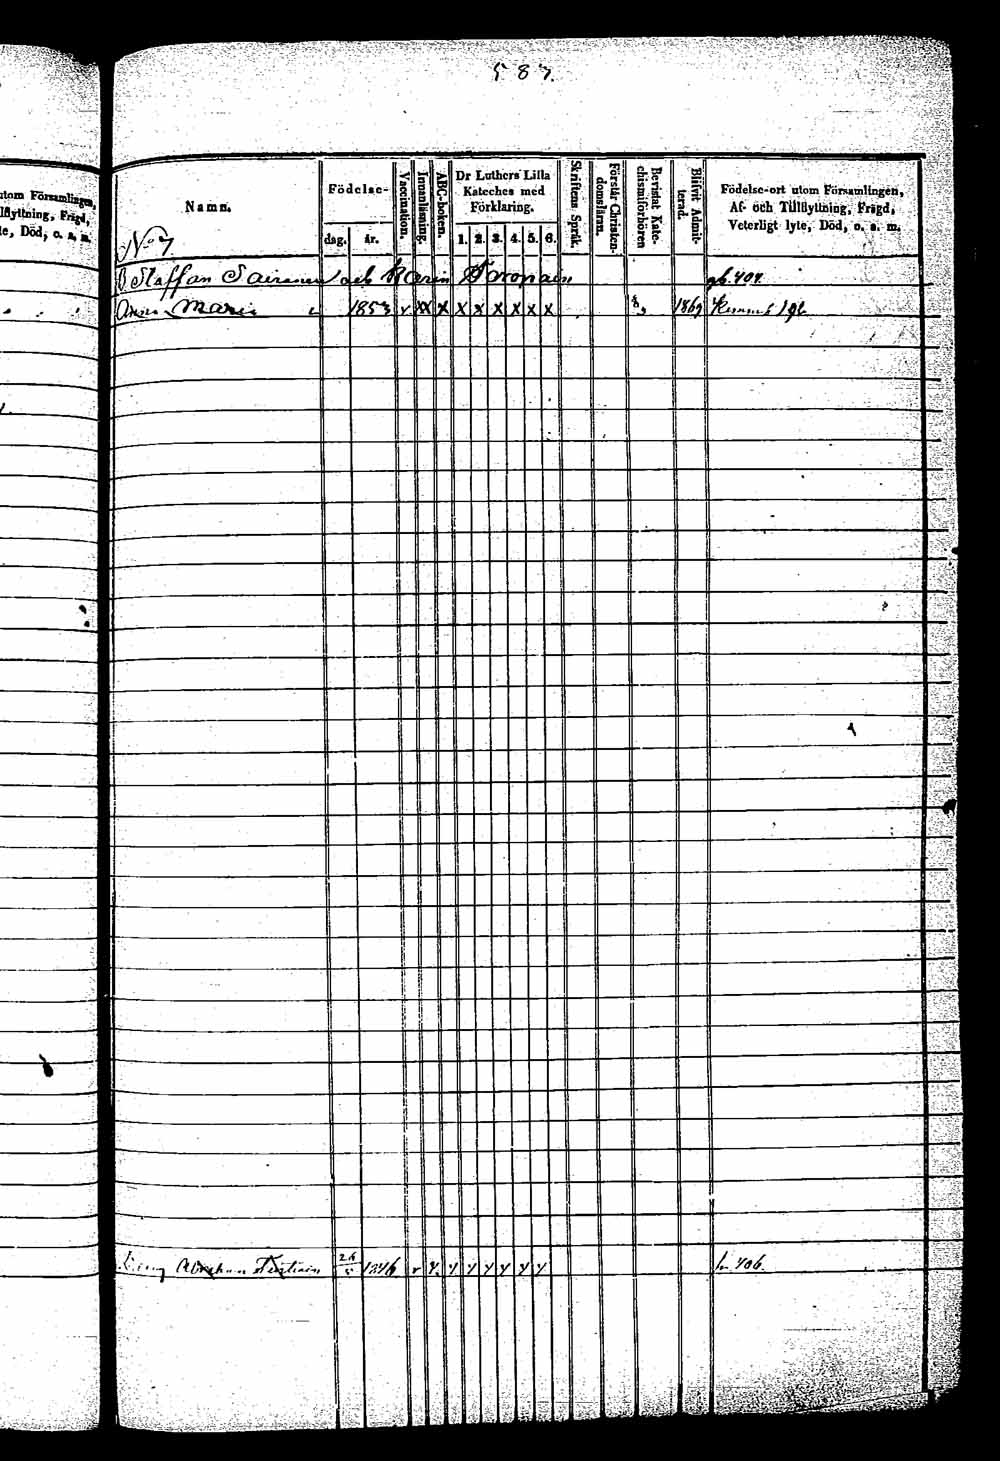 587.
utom Församlingen,
Frägd,
Död, o. s. m.
Namn.
Födelse-
dag. år.
Vaccination.
Innanläsning.
ABC-boken.
Dr Luthers Lilla
Kateches med
Förklaring.
1. 2. 3. 4. 5. 6.
Skriftens Språk.
Förstår Christen-
domsläran.
Bevistat Kate-
chismiförhören
Blifvit Admit-
terad.
Födelse-ort utom Församlingen,
Af- och Tillflyttning, Frägd,
Veterligt lyte, Död, o. s. m.
No 7
B. Staffan Sairanen och Karin Toropain
Anna Maria 1853 v XX X X X X X X X 1869
Abraham 26/5 1846 406.